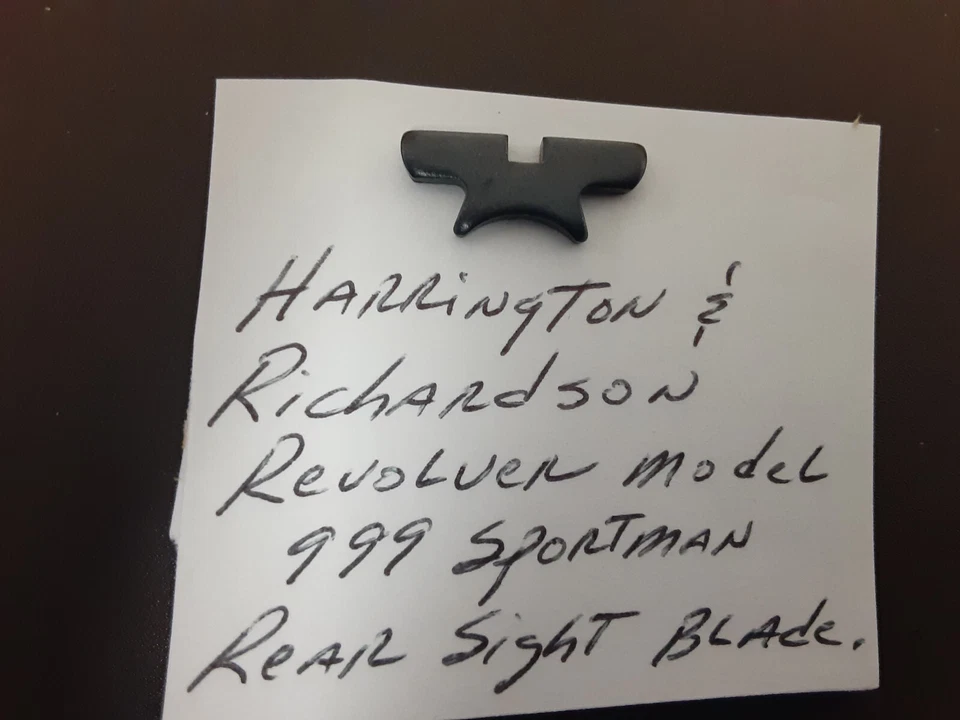 HARRingTON &
RichARdSON
RevOLveR model
999 SpORTmAN
ReAR SighT BLAde.